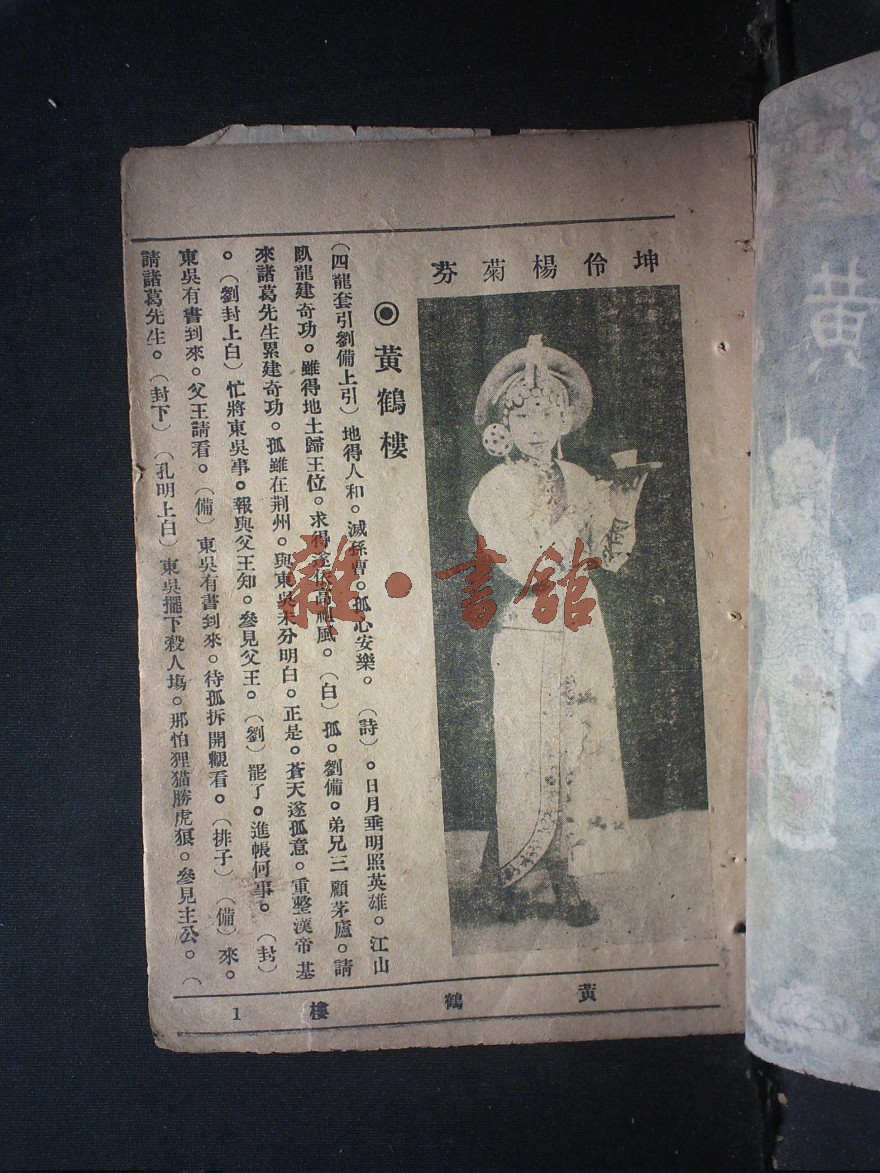 坤伶楊菊芬
◉黃鶴樓
(四龍套引劉備上引)地得人和。滅孫曹。孤心安樂。(詩)。日月垂明照英雄。江山
臥龍建奇功。雖得地土歸王位。求得 風。(白)孤。劉備。弟兄三顧茅廬。請
來諸葛先生累建奇功。孤雖在荆州。與東吳未分明白。正是。蒼天遂孤意。重整漢帝基
。(劉封上白)忙將東吳事。報與父王知。參見父王。(劉)罷了。進帳何事。(封)
東吳有書到來。父王請看。(備)東吳有書到來。待孤拆開觀看。(排子)(備)來。
請諸葛先生。(封下)(孔明上白)東吳擺下殺人塲。那怕狸猫勝虎狼。參見主公。(
黃鶴樓 1
雜·書館
黃